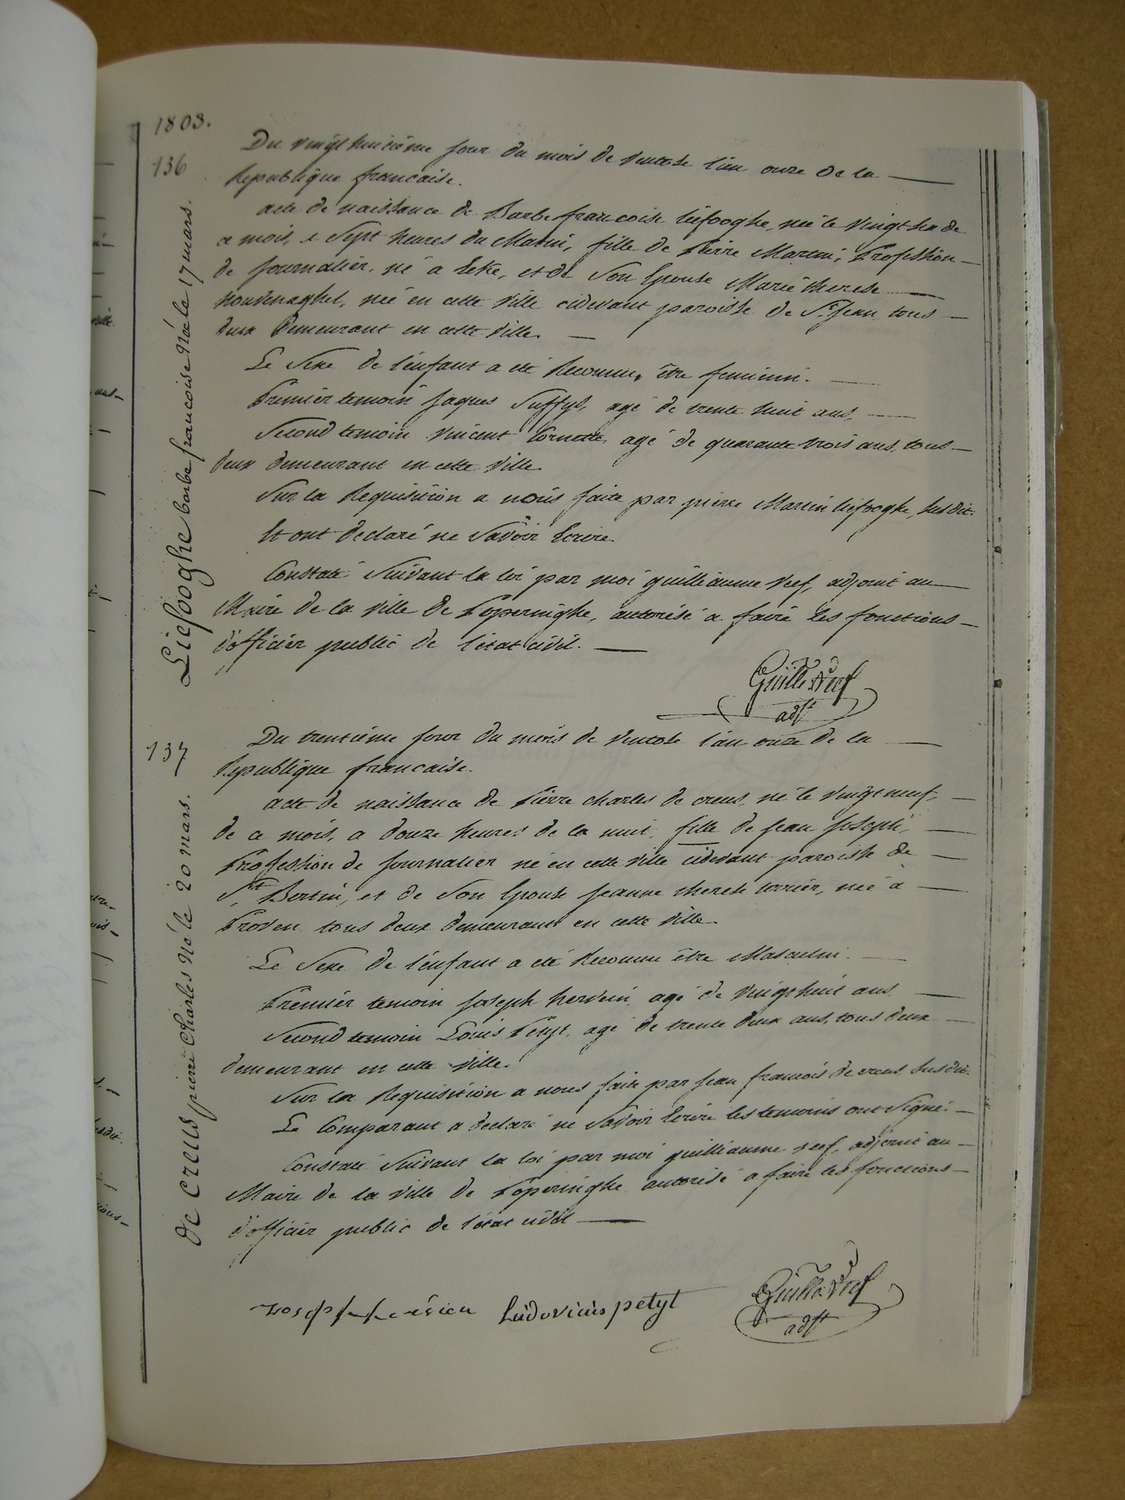 1803.
136
Liefooghe barbe francoise Née le 17 mars.
Du vingt huitiéme jour du mois de Ventose l'an onze de la
Republique francaise.
acte de naissance de Barbe francoise liefooghe, née le vingt six de
ce mois, a Sept heures du Matin, fille de Pierre Martin, Profession
de journalier, né a Leke, et de Son Epouse Marie therese
née en cette Ville cidevant paroisse de St. Jean tous
deux demeurant en cette Ville.
Le Sexe de l'enfant a été Reconnu, être feminin.
Premier temoin Jaques Suffys, agé de trente huit ans,
Second temoin Vincent Cornette, agé de quarante trois ans, tous
deux demeurant en cette Ville.
Sur la Requisition a nous faite par pierre Martin liefooghe, Susdit.
Et ont declaré ne Savoir Ecrire.
Constaté Suivant la loi par moi guilliaume Neef, adjoint au
Maire de la Ville de Poperinghe, autorisé a faire les fonctions
d'officier public de l'état civil.
Guille Neef
adjt
137
De Creus pierre Charles Né le 20 mars.
Du trentiéme jour du mois de Ventose l'an onze de la
Republique francaise.
acte de naissance de Pierre charles de creus, né le vingt neuf,
de ce mois, a douze heures de la nuit, fille de jean joseph,
Profession de journalier né en cette Ville cidevant paroisse de
St. Bertin, et de Son Epouse jeanne therese née à
Proven tous deux demeurant en cette Ville.
Le Sexe de l'enfant a été Reconnu être Masculin.
Premier temoin joseph agé de Vingt huit ans
Second temoin Louis Petyt, agé de trente deux ans, tous deux
demeurant en cette Ville.
Sur la Requisition a nous faite par jean francois de creus Susdit.
Le Comparant a declaré ne Savoir Ecrire les temoins ont Signé.
Constaté Suivant la loi par moi guilliaume neef, adjoint au
Maire de la Ville de Poperinghe autorisé a faire les fonctions
d'officier public de l'état civil
Ludovicus petyt
Guille Neef
adjt